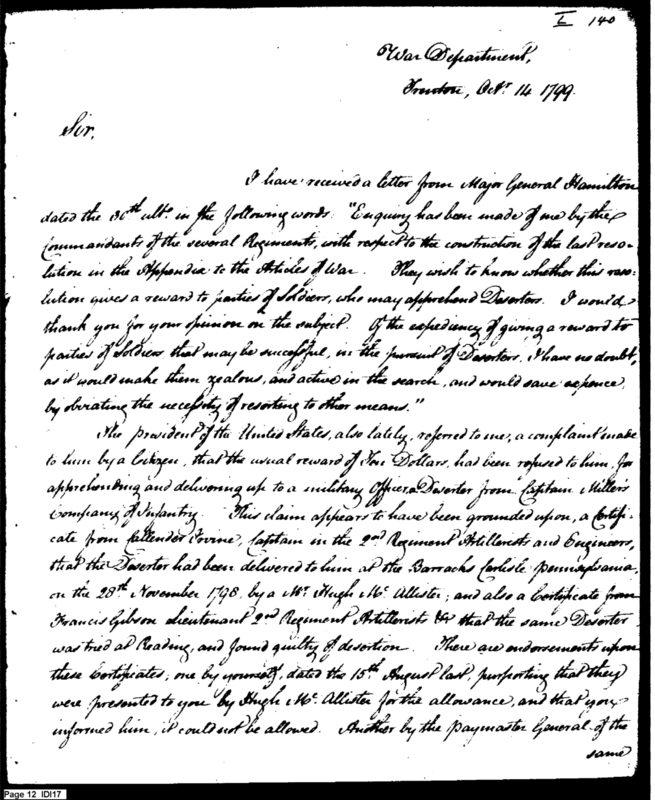 I 140
War Department,
Trenton, Octr. 14 1799.
Sir,
I have received a letter from Major General Hamilton
dated the 30th ulto. in the following words: "Enquiry has been made of me by the
Commandants of the several Regiments, with respect to the construction of the last reso-
lution in the Appendix to the Articles of War. They wish to know whether this reso-
lution gives a reward to parties of Soldiers, who may apprehend Deserters. I would
thank you for your opinion on the subject. Of the expediency of giving a reward to
parties of Soldiers that may be successful, in the pursuit of Deserters, I have no doubt,
as it would make them zealous, and active in the search, and would save expence,
by obviating the necessity of resorting to other means."
The President of the United States, also lately, referred to me, a complaint made
to him by a Citizen, that the usual reward of Ten Dollars, had been refused to him, for
apprehending and delivering up to a military Officer a Deserter from Captain Miller's
Company of Infantry. This claim appears to have been grounded upon, a Certifi-
cate from Callender Irvine, Captain in the 2nd Regiment Artillerists and Engineers,
that the Deserter had been delivered to him at the Barracks Carlisle Pennsylvania,
on the 28th November 1798, by a Mr. Hugh Mc. Allister; and also a Certificate from
Francis Gibson Lieutenant 2nd Regiment Artillerists &c that the same Deserter
was tried at Reading, and found guilty of desertion. There are endorsements upon
these Certificates, one by yourself, dated the 15th August last, purporting that they
were presented to you by Hugh Mc. Allister for the allowance, and that you
informed him, it could not be allowed. Another by the Paymaster General of the
same
Page 12 IDI17